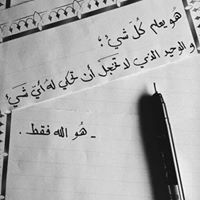 هُو يعلم كُل شيءْ ؛
والوحيد الذي لا تخجل أن تحكي لهُ أيَّ شيء
- هُو الله فقط .